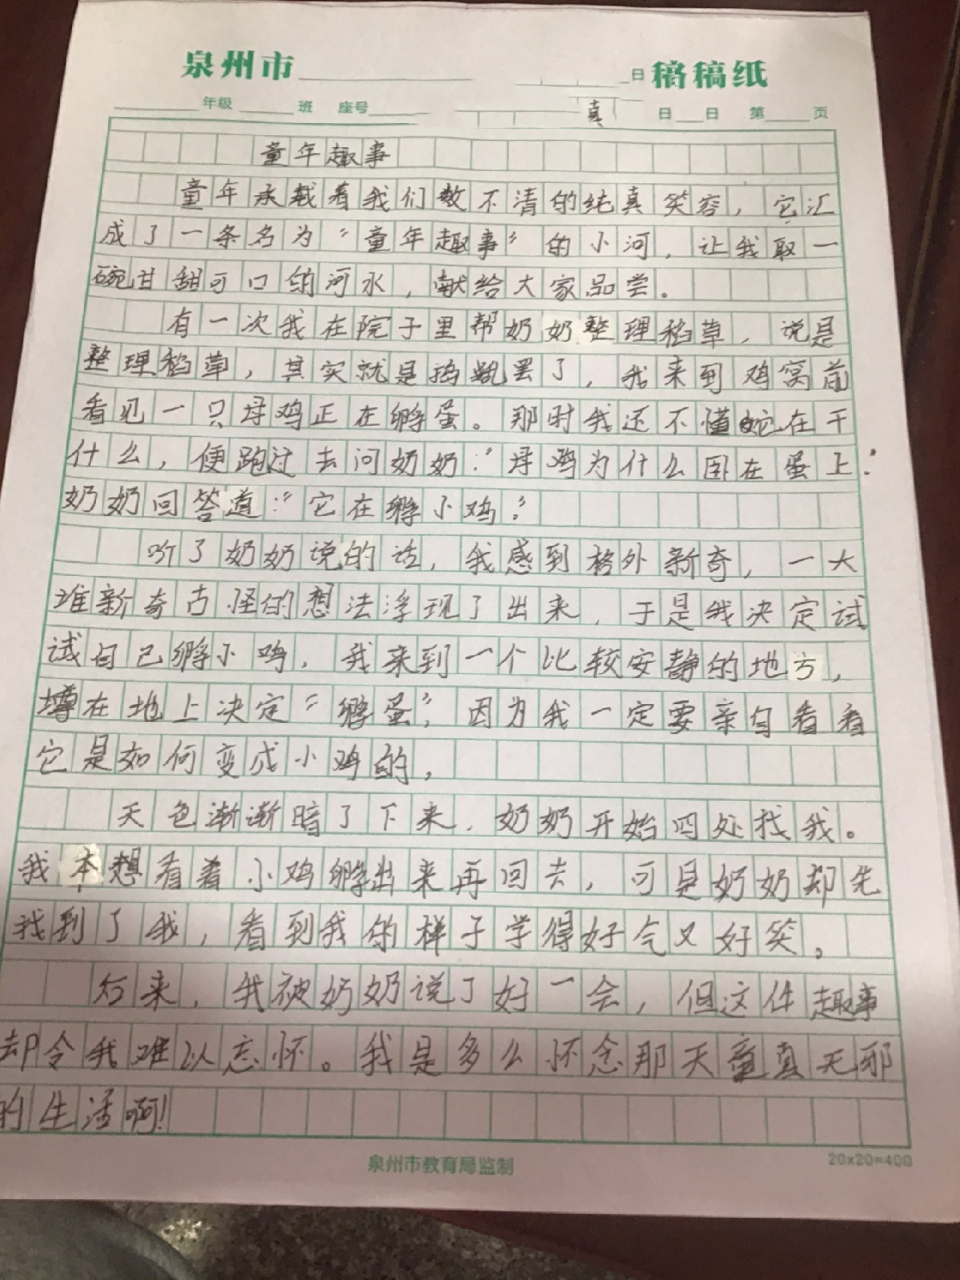 泉州市 日 稿稿纸
年级 班 座号 真 日 日 第 页
童年趣事
童年承载着我们数不清的纯真笑容，它汇
成了一条名为“童年趣事”的小河，让我取一
碗甘甜可口的河水，献给大家品尝。
有一次我在院子里帮奶奶整理稻草，说是
整理稻草，其实就是捣乱罢了，我来到鸡窝前
看见一只母鸡正在孵蛋。那时我还不懂它在干
什么，便跑过去问奶奶：“母鸡为什么卧在蛋上”
奶奶回答道：“它在孵小鸡”
听了奶奶说的话，我感到格外新奇，一大
堆新奇古怪的想法浮现了出来，于是我决定试
试自己孵小鸡，我来到一个比较安静的地方，
蹲在地上决定“孵蛋”，因为我一定要亲自看看
它是如何变成小鸡的，
天色渐渐暗了下来，奶奶开始四处找我。
我本想看着小鸡孵出来再回去，可是奶奶却先
找到了我，看到我的样子学得好气又好笑。
后来，我被奶奶说了好一会，但这件趣事
却令我难以忘怀。我是多么怀念那天童真无邪
的生活啊！
泉州市教育局监制 20×20=400